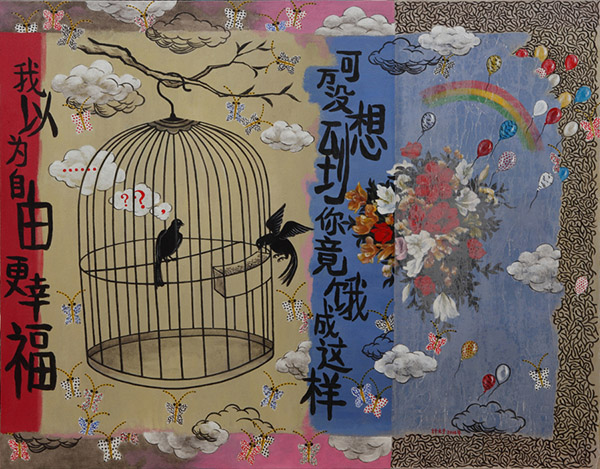 我以为自由更幸福
......
??,
可没想到你竟饿成这样